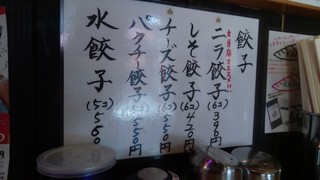 餃子
ニラ餃子(6コ)390円
しそ餃子(6コ)420円
チーズ餃子(6コ)550円
パクチー餃子(5コ)550円
水餃子(5コ)560